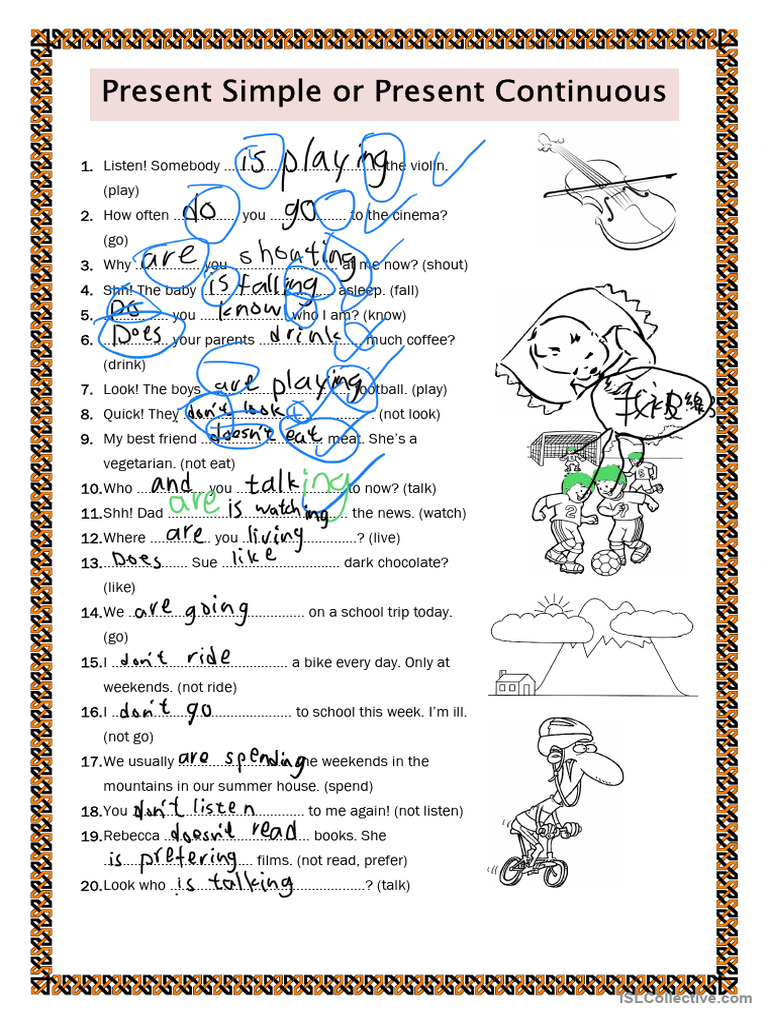 Present Simple or Present Continuous
1. Listen! Somebody is playing the violin.
(play)
2. How often do you go to the cinema?
(go)
3. Why are you shouting at me now? (shout)
4. Shh! The baby is falling asleep. (fall)
5. Do you know who I am? (know)
6. Does your parents drink much coffee?
(drink)
7. Look! The boys are playing football. (play)
8. Quick! They don't look. (not look)
9. My best friend doesn't eat meat. She's a
vegetarian. (not eat)
10. Who and are you talking to now? (talk)
11. Shh! Dad is watching the news. (watch)
12. Where are you living? (live)
13. Does Sue like dark chocolate?
(like)
14. We are going on a school trip today.
(go)
15. I don't ride a bike every day. Only at
weekends. (not ride)
16. I don't go to school this week. I'm ill.
(not go)
17. We usually are spending the weekends in the
mountains in our summer house. (spend)
18. You don't listen to me again! (not listen)
19. Rebecca doesn't read books. She
is prefering films. (not read, prefer)
20. Look who is talking? (talk)
2
7
iSLCollective.com